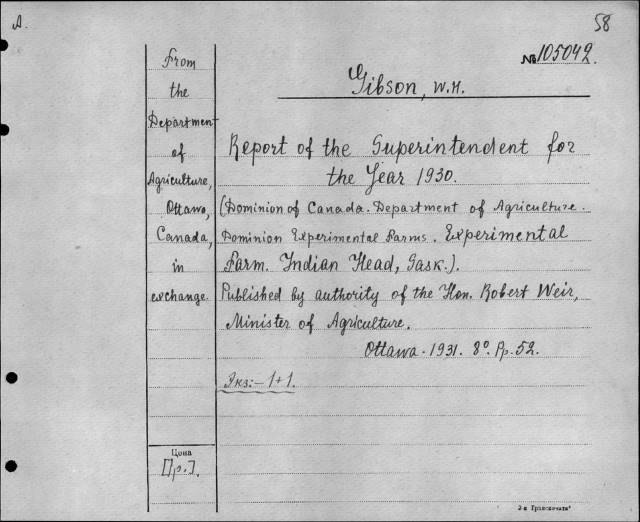 A.
58
№ 105042.
Gibson, W.H.
From
the
Department
of
Agriculture,
Ottawa,
Canada,
in
exchange.
Report of the Superintendent for
the Year 1930.
(Dominion of Canada. Department of Agriculture.
Dominion Experimental Farms. Experimental
Farm. Indian Head, Sask.).
Published by authority of the Hon. Robert Weir,
Minister of Agriculture.
Ottawa. 1931. 8°. Pp. 52.
Экз:-1+1.
Цена
[1р.].